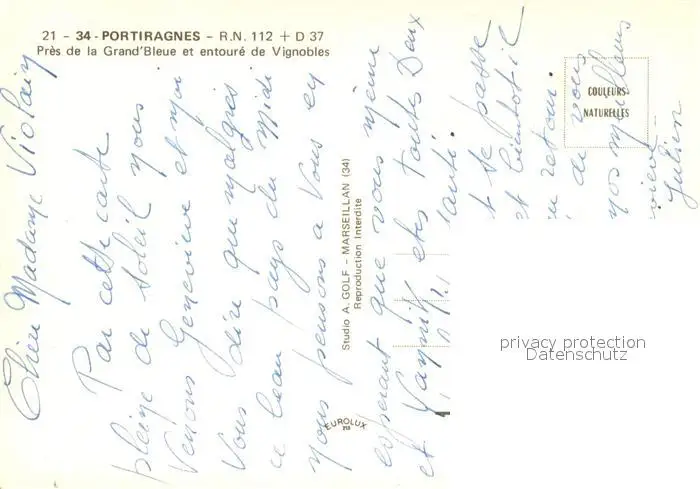 21 - 34 - PORTIRAGNES - R.N. 112 + D 37
Près de la Grand'Bleue et entouré de Vignobles
Chère Madame Violain
Par cette carte
pleine de soleil nous
venons Geneviève et moi
vous dire que malgrès
ce beau pays du Midi
nous pensons a vous en
esperant que vous même
et etes toutes Deux
santé.
t se passe
et bientot
retour.
de vous
nos meilleurs
vieve
Julien
Studio A. GOLF - MARSEILLAN (34)
Reproduction Interdite
EUROLUX
COULEURS
NATURELLES
privacy protection
Datenschutz